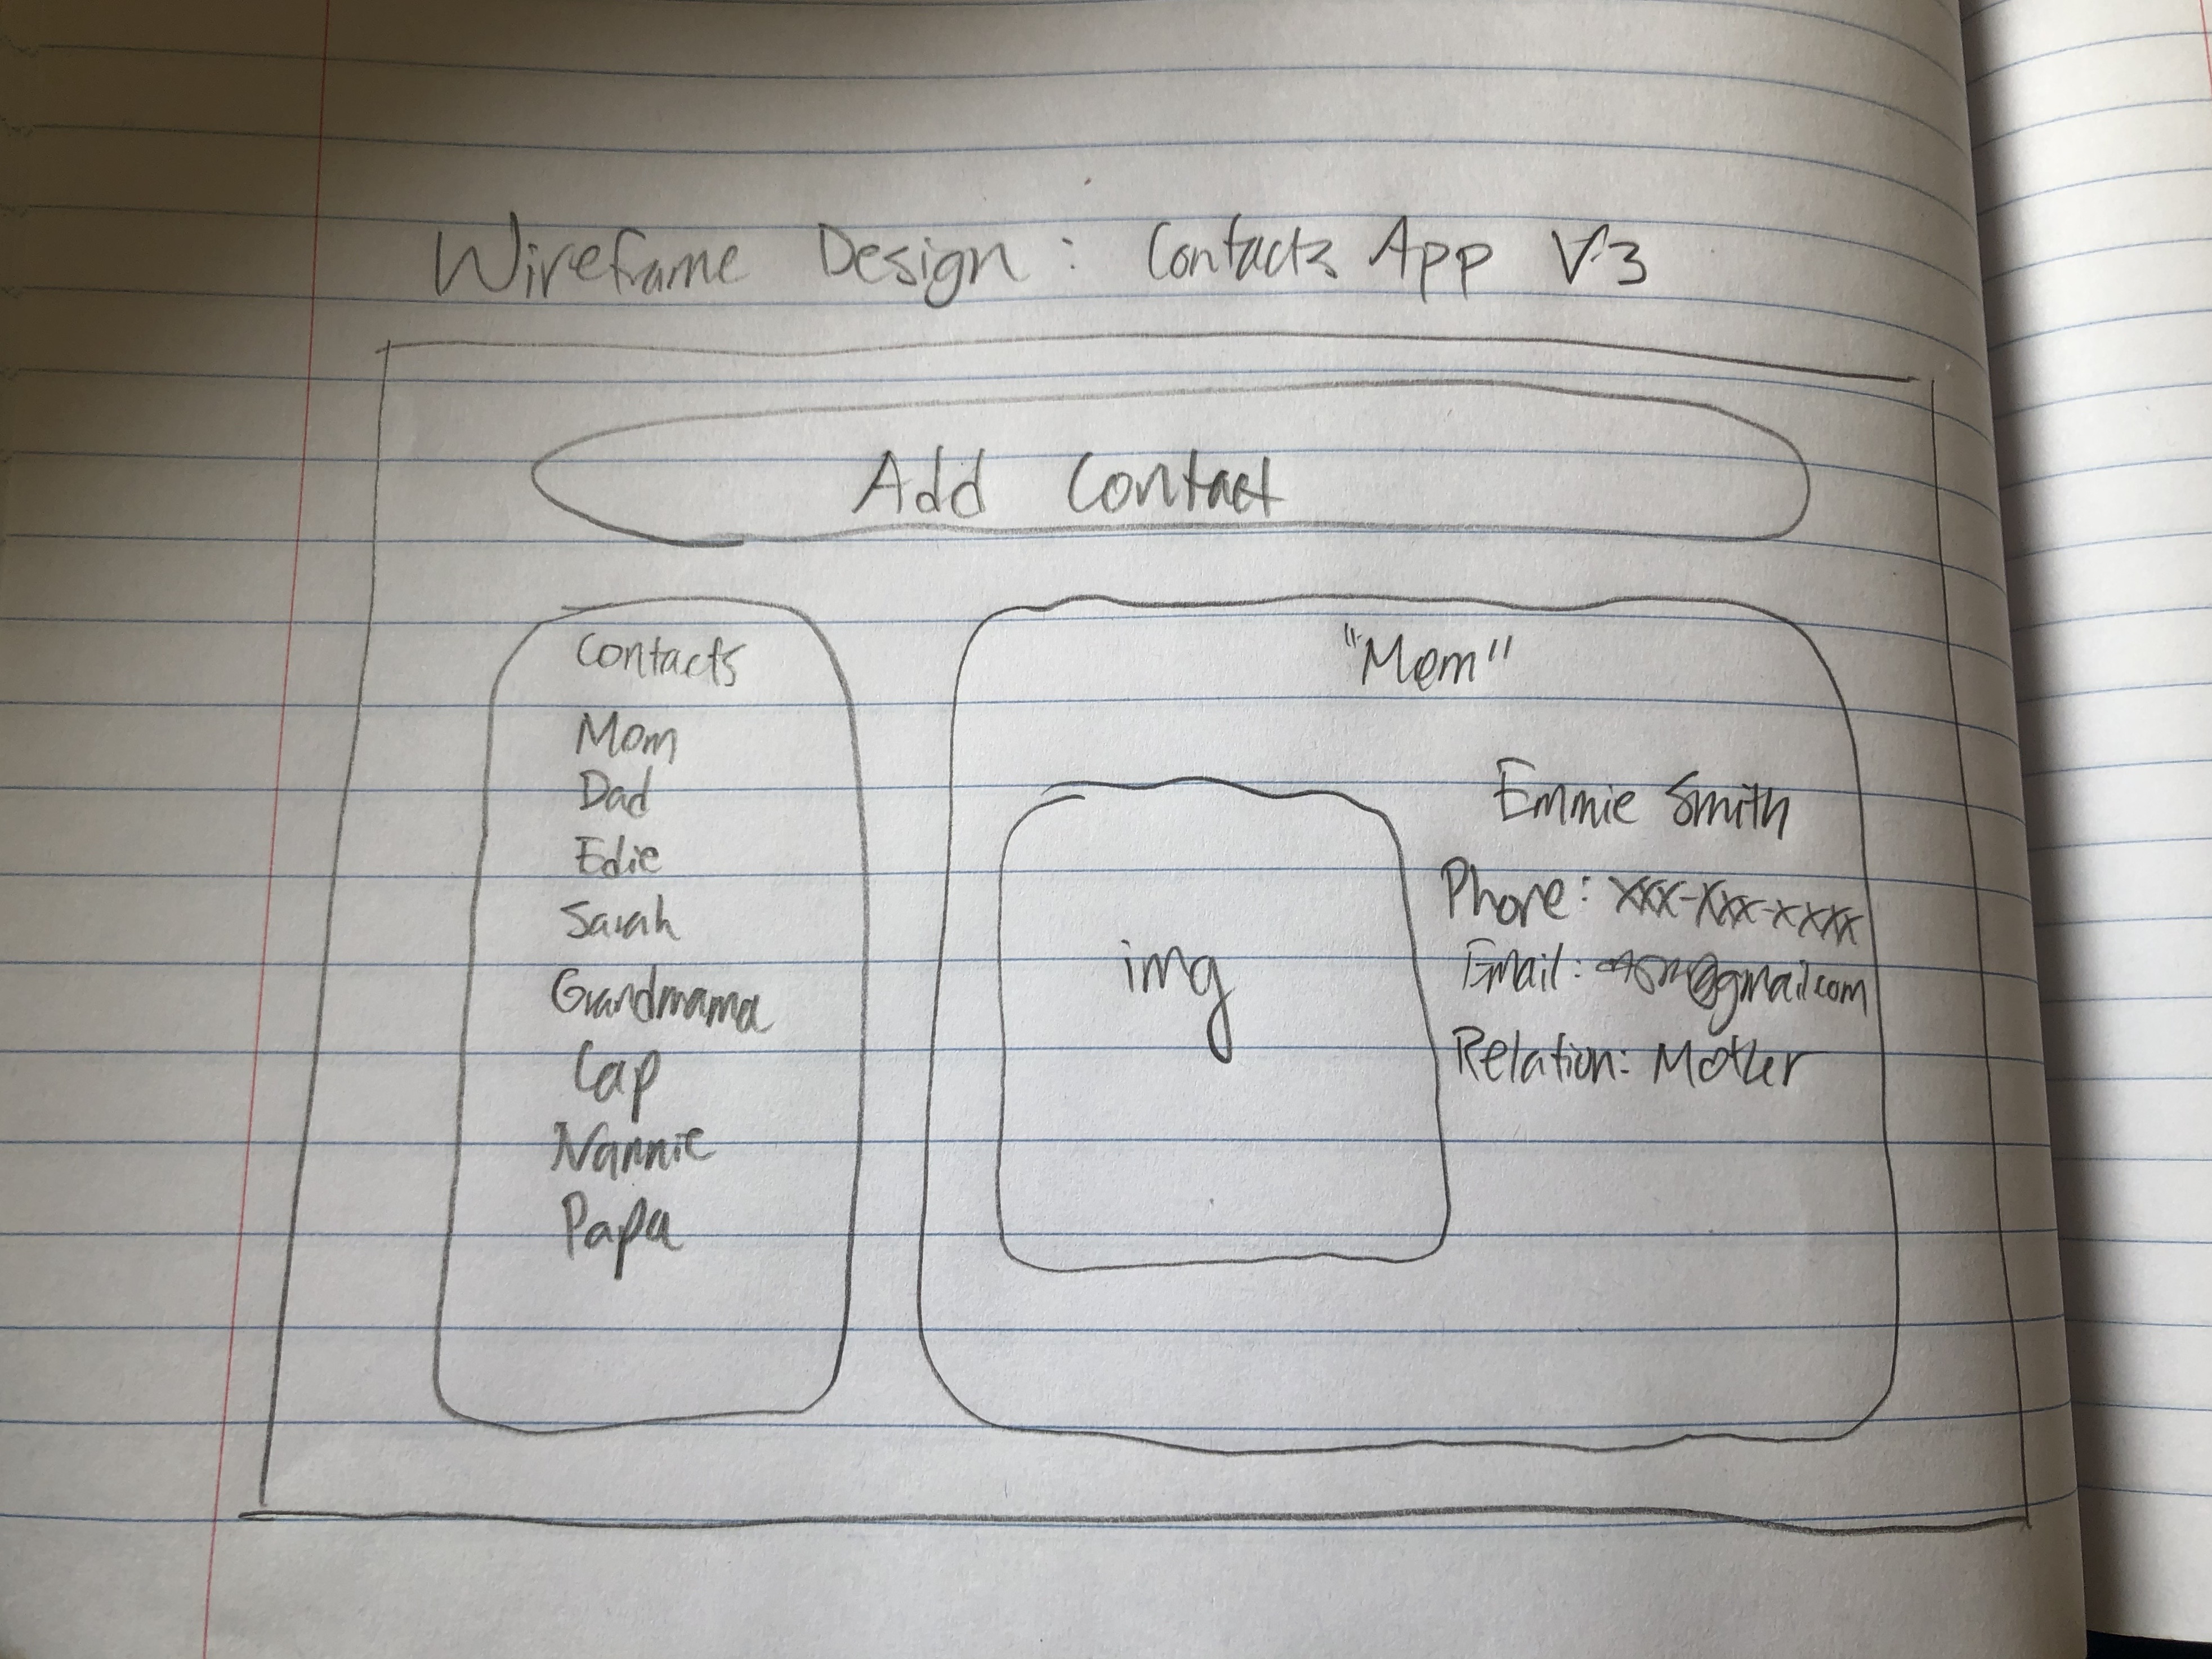 Wireframe Design: Contacts App V3
Add Contact
Contacts
Mom
Dad
Edie
Sarah
Grandmama
Cap
Nannie
Papa
"Mom"
img
Emmie Smith
Phone: xxx-xxx-xxxx
Email: @gmail.com
Relation: Mother